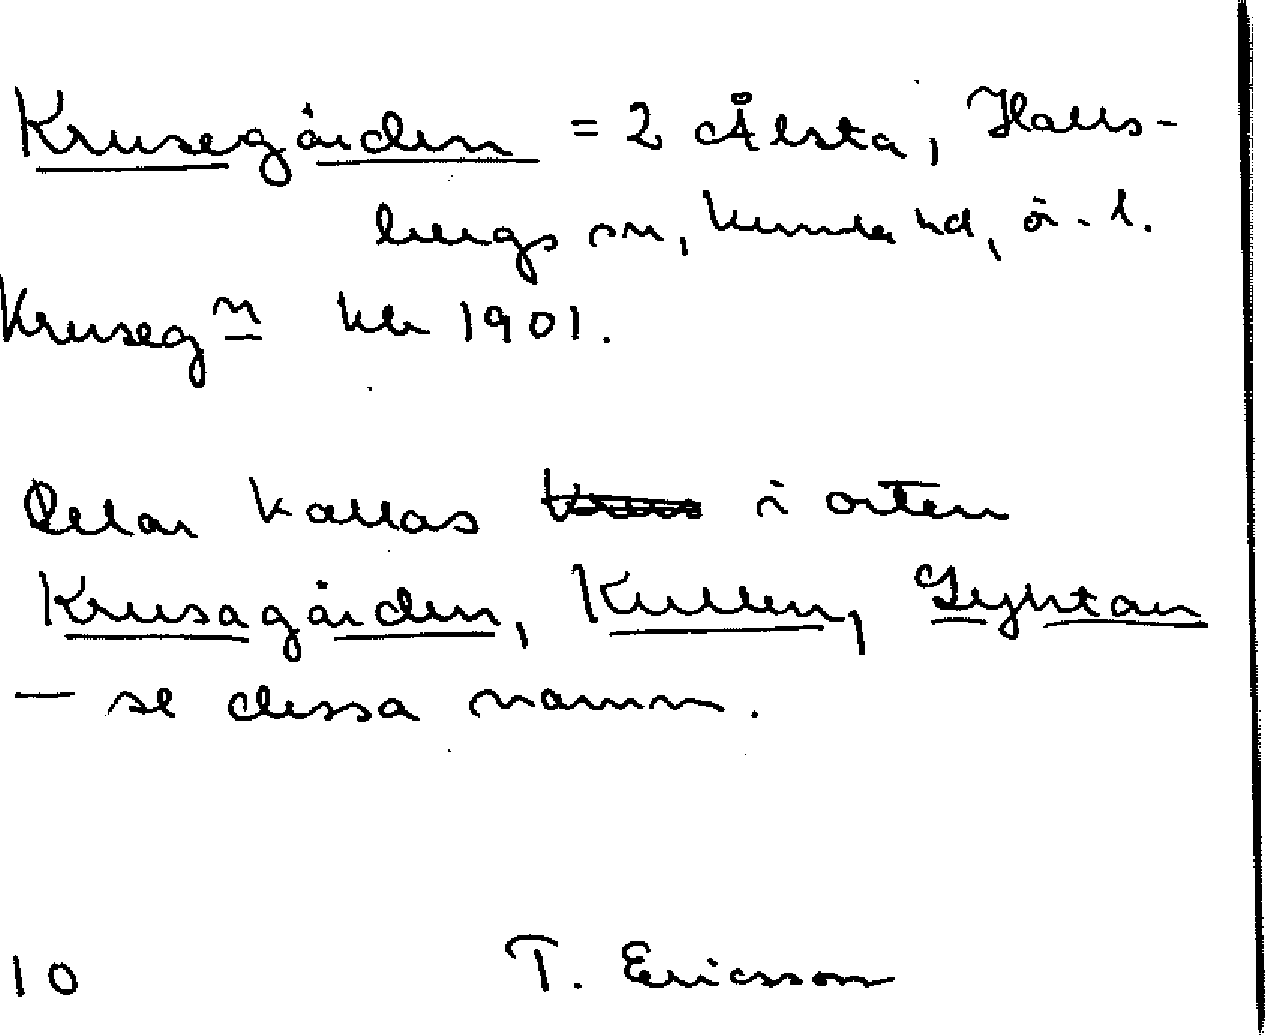 Krusegården = 2 Ålsta, Halls-
bergs sn, Kumla hd, ör. l.
Kruseg n kbr 1901.
Delar kallas i orten
Krusagården, Kullen, Lyktan
— se dessa namn.
10 T. Ericsson